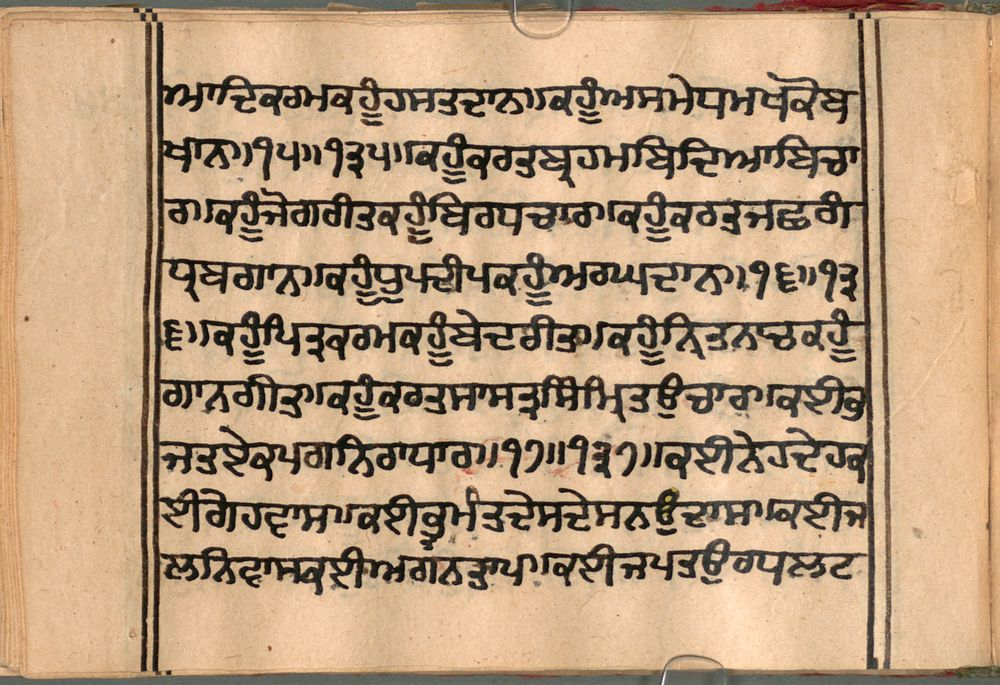 ਆਦਿਕਰਮਕਹੂੰਹਸਤਦਾਨ॥ਕਹੂੰਅਸਮੇਧਮਖਕੋਬ
ਖਾਨ॥੧੫॥੧੩੫॥ਕਹੂੰਕਰਤਬ੍ਰਹਮਬਿਦਿਆਬਿਚਾ
ਰ॥ਕਹੂੰਜੋਗਰੀਤਕਹੂੰਬਿਰਧਚਾਰ॥ਕਹੂੰਕਰਤਜਛਗੰ
ਧ੍ਰਬਗਾਨ॥ਕਹੂੰਧੂਪਦੀਪਕਹੂੰਅਰਘਦਾਨ॥੧੬॥੧੩
੬॥ਕਹੂੰਪਿਤ੍ਰਕਰਮਕਹੂੰਬੇਦਰੀਤ॥ਕਹੂੰਨ੍ਰਿਤਨਾਚਕਹੂੰ
ਗਾਨਗੀਤ॥ਕਹੂੰਕਰਤਸਾਸਤ੍ਰਸਿੰਮ੍ਰਿਤਉਚਾਰ॥ਕਈਭ
ਜਤਏਕਪਗਨਿਰਾਧਾਰ॥੧੭॥੧੩੭॥ਕਈਨੇਹਦੇਹਕ
ਈਗੇਹਵਾਸ॥ਕਈਭ੍ਰਮੰਤਦੇਸਦੇਸਨਉਦਾਸ॥ਕਈਜ
ਲਨਿਵਾਸਕਈਅਗਨਤਾਪ॥ਕਈਜਪਤਉਰਧਲਟ